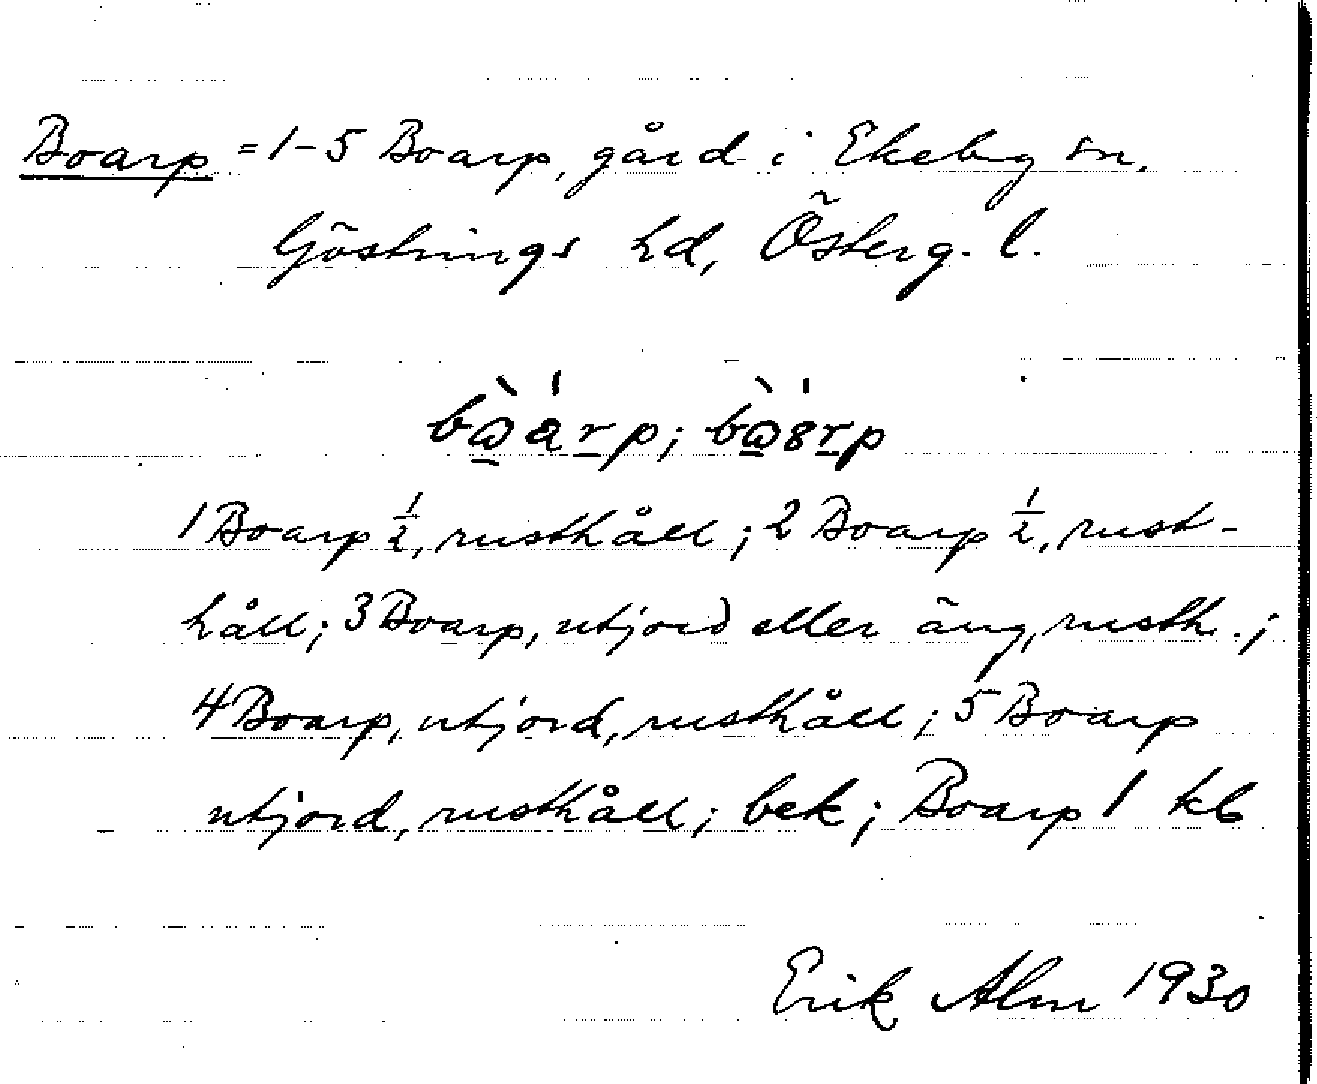 Boarp = 1-5 Boarp, gård i Ekeby sn,
Göstrings hd, Österg. l.
1 Boarp ½, rusthåll; 2 Boarp ½, rust-
håll; 3 Boarp, utjord eller äng, rusth.;
4 Boarp, utjord, rusthåll; 5 Boarp
utjord, rusthåll; bek; Boarp 1 kb
Erik Alm 1930